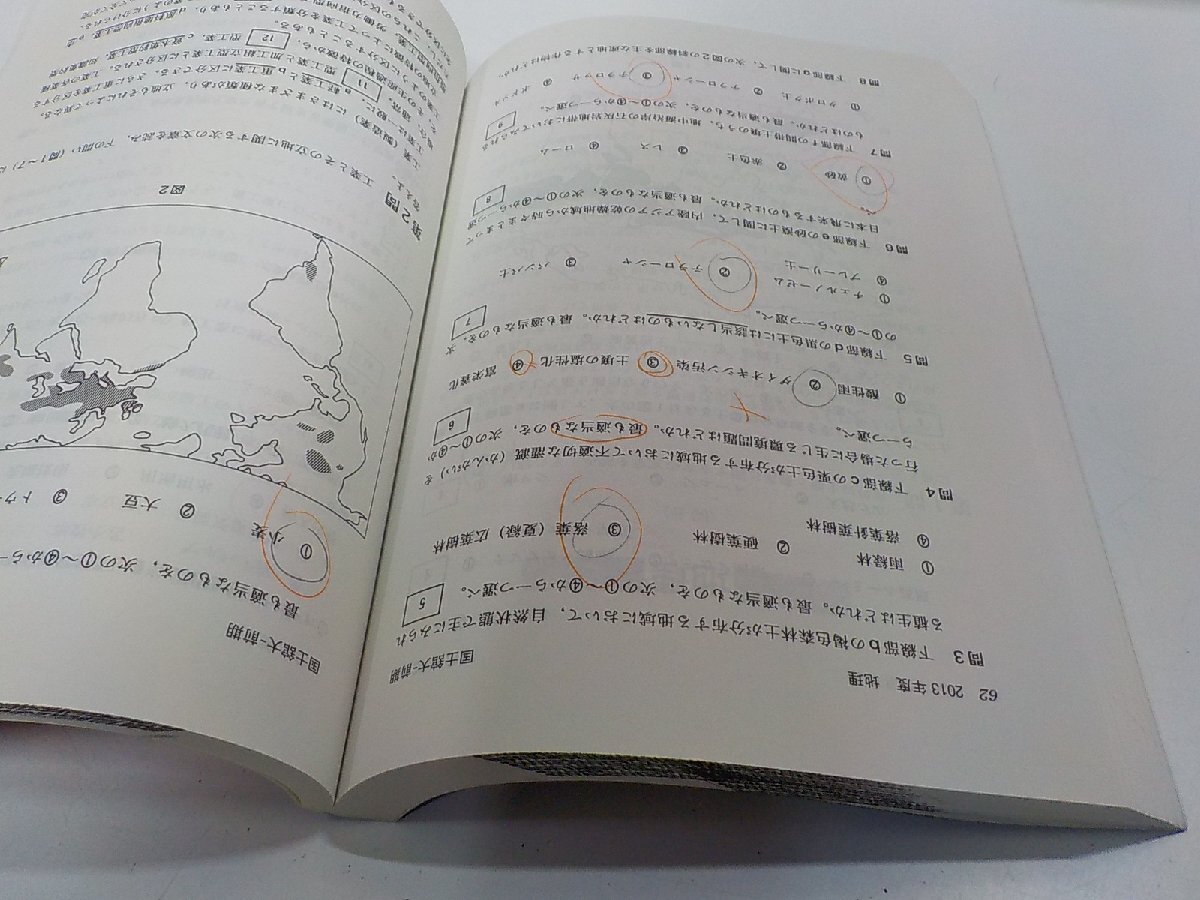 62 2013年度 地理
国士舘大-前期
問3 下線部bの褐色森林土が分布する地域において，自然状態で主にみられ
る植生はどれか。最も適当なものを，次の①〜④から一つ選べ。
5
① 雨緑林
② 硬葉樹林
③ 落葉（夏緑）広葉樹林
④ 落葉針葉樹林
問4 下線部cの栗色土が分布する地域において不適切な灌漑（かんがい）を
行った場合に生じる環境問題はどれか。最も適当なものを，次の①〜④か
ら一つ選べ。
6
① 酸性雨
② ダイオキシン汚染
③ 土壌の塩性化
④ 富栄養化
問5 下線部dの黒色土には該当しないものはどれか。最も適当なものを，次
の①〜④から一つ選べ。
7
① チェルノーゼム
② テラローシャ
③ パンパ土
④ プレーリー土
問6 下線部eの砂漠土に関して，内陸アジアの乾燥地域から時々まとまって
日本に飛来するものはどれか。最も適当なものを，次の①〜④から一つ選べ。
8
① 黄砂
② 赤色土
③ レス
④ ローム
問7 下線部fの間帯土壌のうち，地中海沿岸の石灰岩地帯においてみられる
ものはどれか。最も適当なものを，次の①〜④から一つ選べ。
9
① クロボク土
② テラローシャ
③ テラロッサ
④ ポドゾル
問8 下線部aに関して，次の図2の斜線部を主な産地とする作物はどれか。
国士舘大-前期
最も適当なものを，次の①〜④から一
① 小麦
② 大豆
③ トウ
図2
第2問 工業とその立地に関する次の文章を読み，下の問い（問1〜7）に
答えよ。
工業（製造業）
11
12